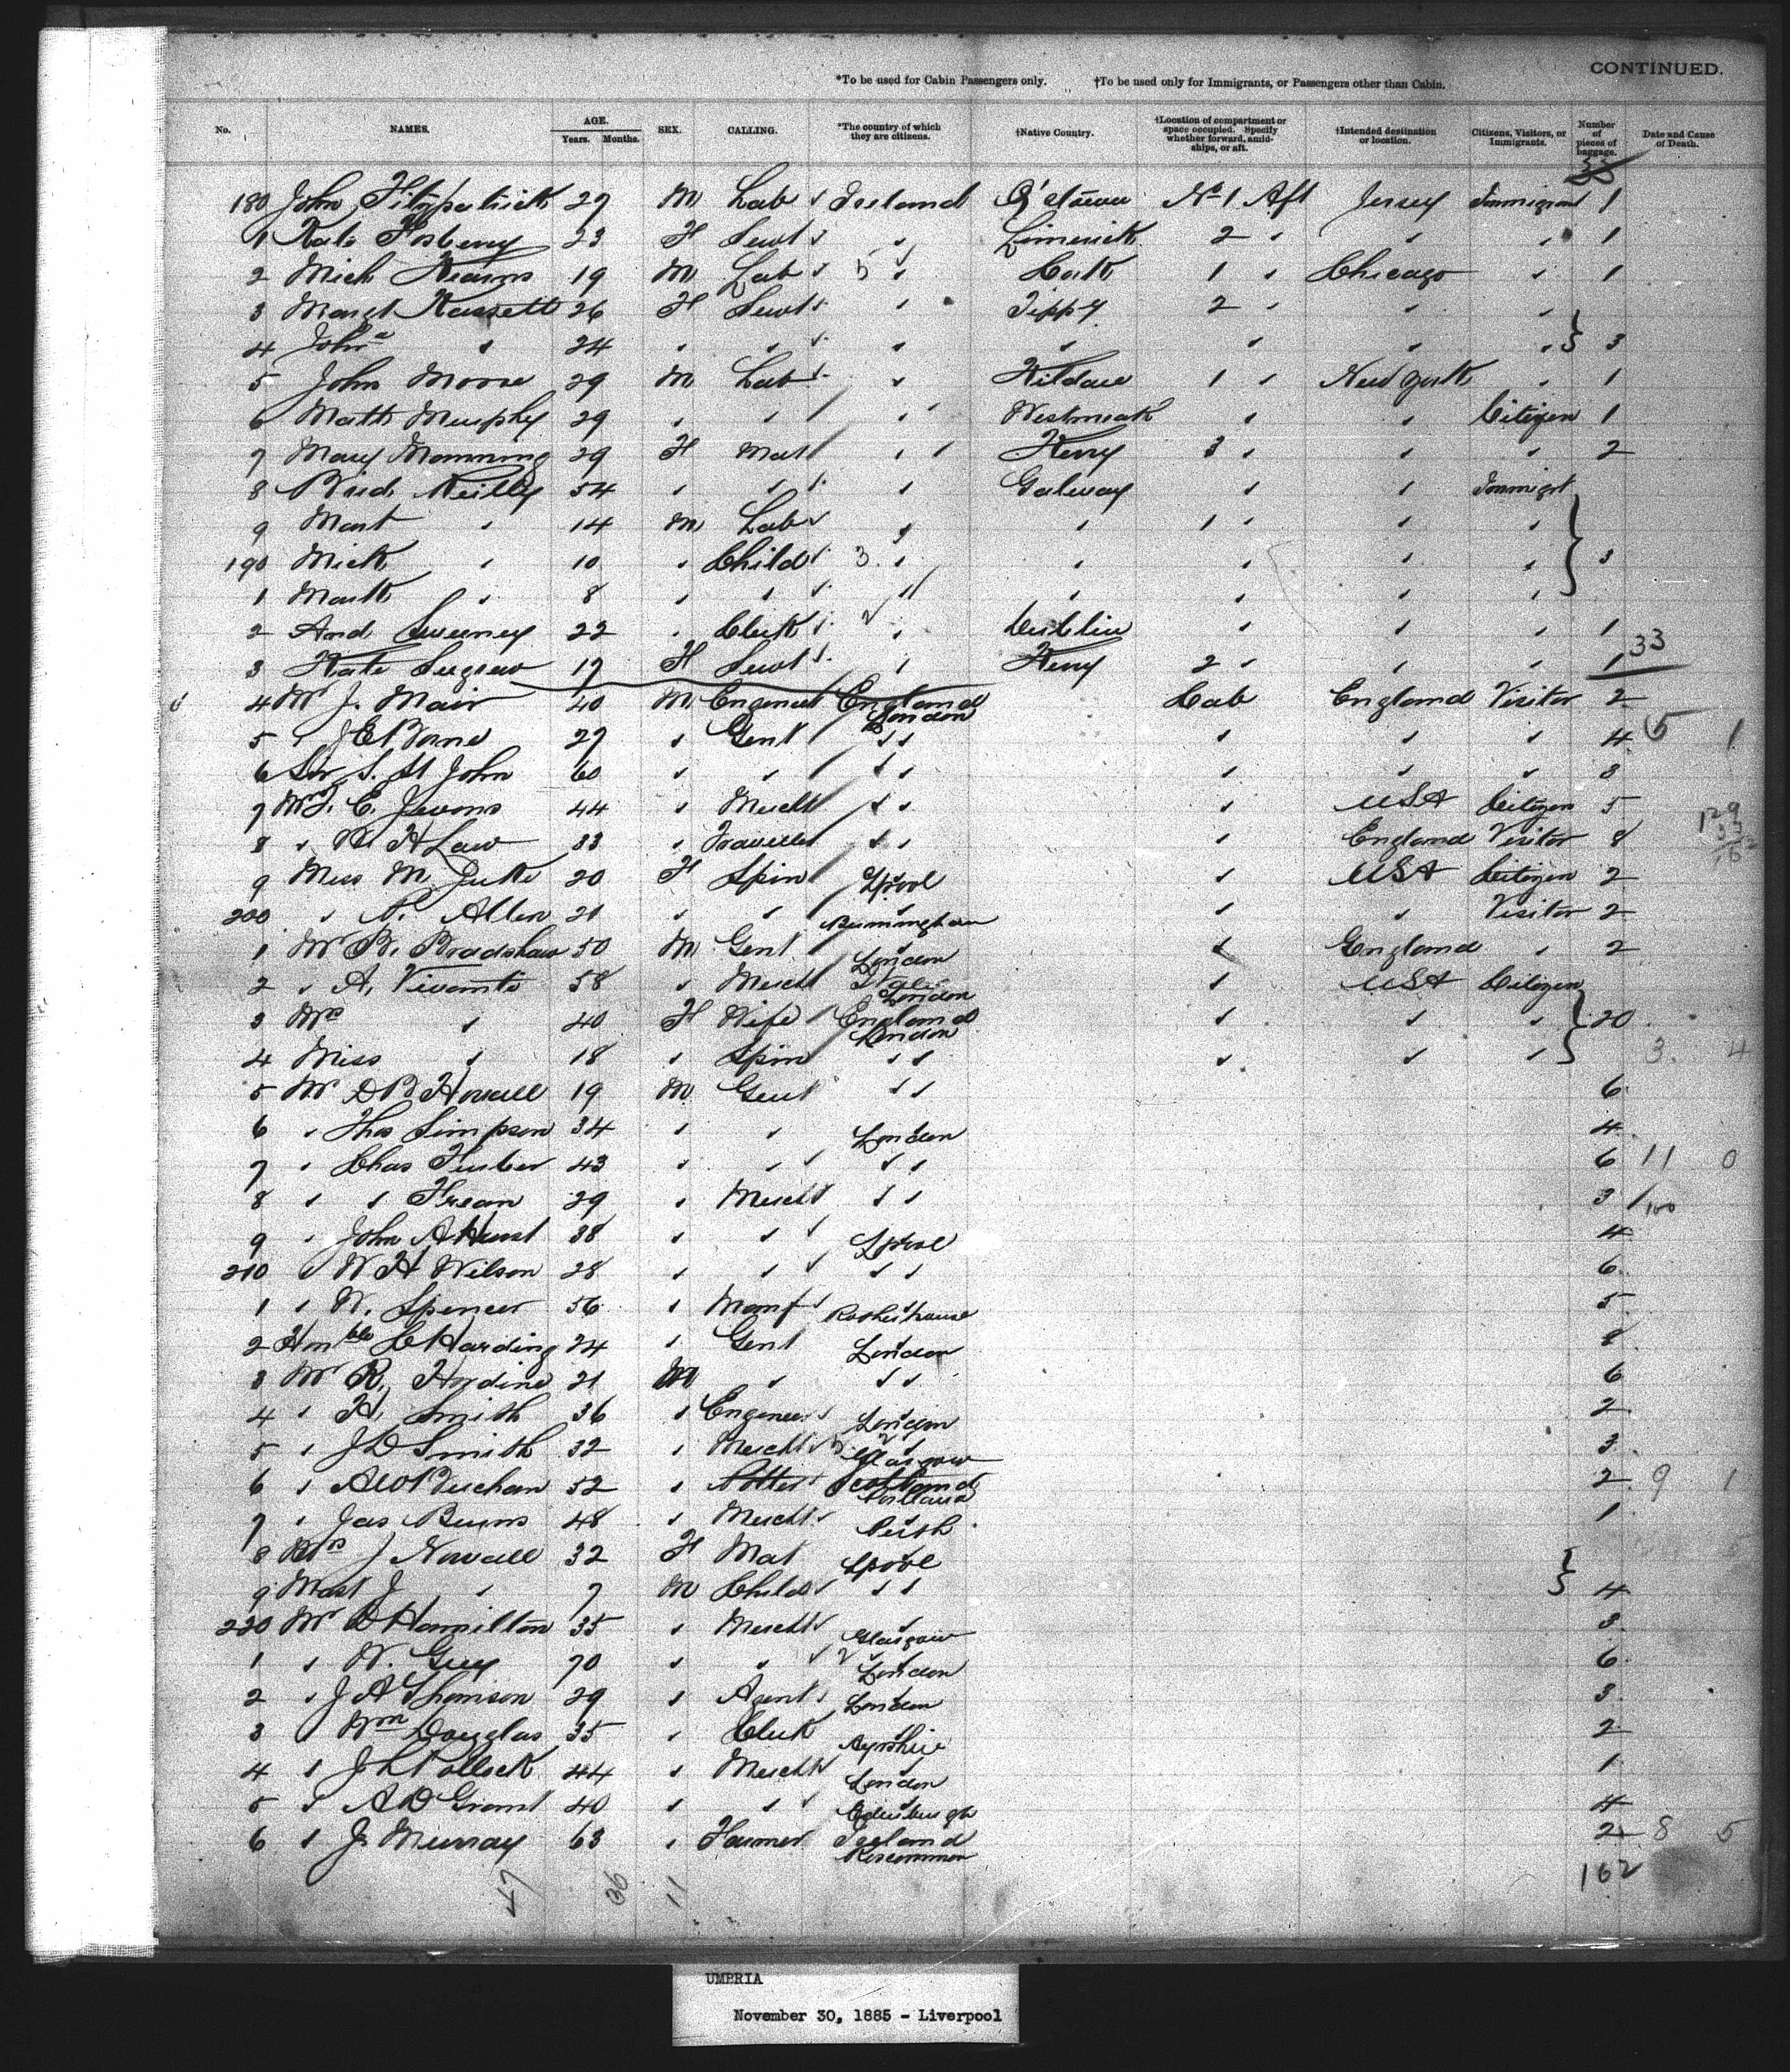 CONTINUED.
*To be used for Cabin Passengers only. †To be used only for Immigrants, or Passengers other than Cabin.
No. NAMES. AGE. Years. Months. SEX. CALLING. *The country of which they are citizens. †Native Country. †Location of compartment or space occupied. Specify whether forward, amidships, or aft. †Intended destination or location. Citizens, Visitors, or Immigrants. Number of pieces of baggage. Date and Cause of Death.
180 John Fitzpatrick 27 M Lab Ireland Q'stown No 1 Aft Jersey Immigrant 1
1 Kate 23 F Servt " Limerick 2 " " " 1
2 Mich Kearns 19 M Lab " Cork 1 " Chicago " 1
3 Margt 26 F Servt " Tippy 2 " " "
4 Joha " 24 " " " " " " " } 3
5 John Moore 29 M Lab " Kildare 1 " New York " 1
6 Matth Murphy 29 " " " Westmeath " " Citizen 1
7 Mary Manning 29 F Mat " Kerry 3 " " " 2
8 Brid Reilly 54 " " " Galway " " Immigt
9 Mart " 14 M Lab " " 1 " " "
190 Mick " 10 " Child " " " " " } 3
1 Mark " 8 " " " " " " "
2 And Sweeney 22 " Clerk " Dublin " " " 1
3 Kate Sugrew 17 F Servt " Kerry 2 " " " 1 33
4 Mr J. Mair 40 M Engineer England London Cab England Visitor 2
5 " J E Borne 27 " Gent " " " " " 4 5 1
6 Sir S. St John 60 " " " " " " " 3
7 Mr T. E. Jevons 44 " Mercht " " " USA Citizen 5
8 " H Law 33 " Traveller " " " England Visitor 8
9 Miss M. 20 F Spin Lpool " USA Citizen 2
200 " N. Allen 21 " " " Birmingham " " Visitor 2
1 Mr B. Bradshaw 50 M Gent London " England " 2
2 " A. Vivanti 58 " Mercht London " USA Citizen
3 Mrs " 40 F Wife England London " " " } 20
4 Miss " 18 " Spin " " " " " 3. 4
5 Mr D B 19 M Gent " " 6
6 " Thos Simpson 34 " " London 4
7 " Chas 43 " " " " 6 11 0
8 " " Frean 29 " Mercht " " 3
9 " John A Hurst 38 " " Lpool 4
210 " W H Wilson 28 " " " " 6
1 " W. Spencer 56 " Manf 5
2 Honble C Harding 24 " Gent London 8
3 Mr R. 21 M " " " 6
4 " H. Smith 36 " Engineer London 2
5 " J D Smith 32 " Mercht Glasgow 3
6 " 52 " Potter Scotland 2 9 1
7 " Jas Burns 48 " Mercht Perth 1
8 Mrs J Nowell 32 F Mat Lpool
9 Mast J " 7 M Child " " } 4
220 Mr D Hamilton 35 " Mercht Glasgow 3
1 " W. Guy 70 " " London 6
2 " J A Thomson 29 " Agent London 3
3 " Wm Douglas 35 " Clerk Ayrshire 2
4 " J Pollock 44 " Mercht London 1
5 " A D Grant 40 " " Edinburgh 4
6 " J. Murray 63 " Farmer Ireland Roscommon 2 8 5
47 36 11 162
UMBRIA
November 30, 1885 - Liverpool